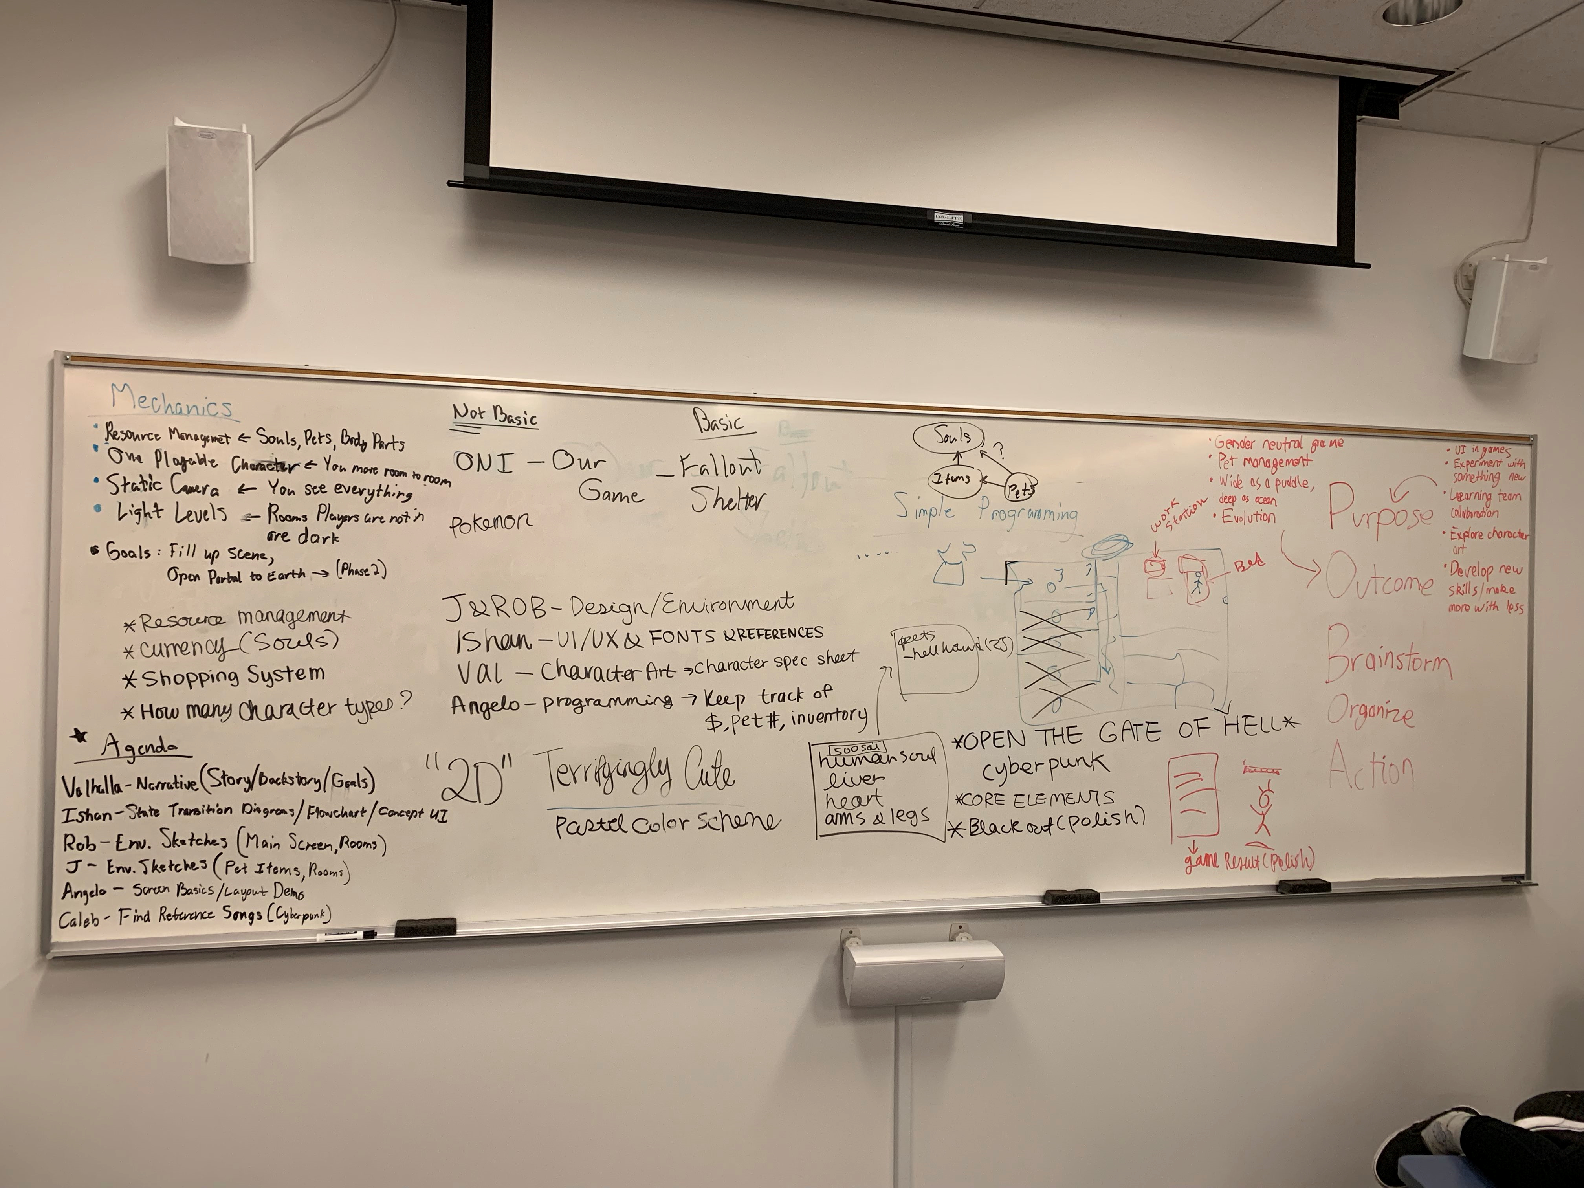 Mechanics
• Resource Managmet ← Souls, Pets, Body Parts
• One Playable Character ← You move room to room
• Static Camera ← You see everything
• Light Levels ← Rooms Players are not in
are dark
• Goals: Fill up Scene,
Open Portal to Earth → (Phase 2)
* Resource management
* currency (Souls)
* Shopping System
* How many character types?
★ Agenda
Valhalla - Narrative (Story/Backstory/Goals)
Ishan - State Transition Diagrams/Flowchart/Concept UI
Rob - Env. Sketches (Main Screen, Rooms)
J - Env. Sketches (Pet Items, Rooms)
Angelo - Screen Basics/Layout Demo
Caleb - Find Reference Songs (Cyberpunk)
Not Basic
ONI - Our
Game
Pokemon
Basic
- Fallout
Shelter
J & ROB - Design/Environment
Ishan - UI/UX & FONTS & REFERENCES
Val - Character Art → character spec sheet
Angelo - programming → Keep track of
$, pet #, inventory
"2D" Terrifyingly Cute
Pastel Color Scheme
Souls
?
Items
Pets
Simple Programming
- hellhound (25)
human soul
liver
heart
arms & legs
*OPEN THE GATE OF HELL*
cyberpunk
*CORE ELEMENTS
* Blackout (polish)
Work
Station
Bed
game Result (polish)
• Gender neutral game
• Pet management
• Wide as a puddle,
deep as ocean
• Evolution
Purpose
Outcome
Brainstorm
Organize
Action
• UI in games
• Experiment with
something new
• Learning team
collaboration
• Explore character
art
• Develop new
skills/make
more with less